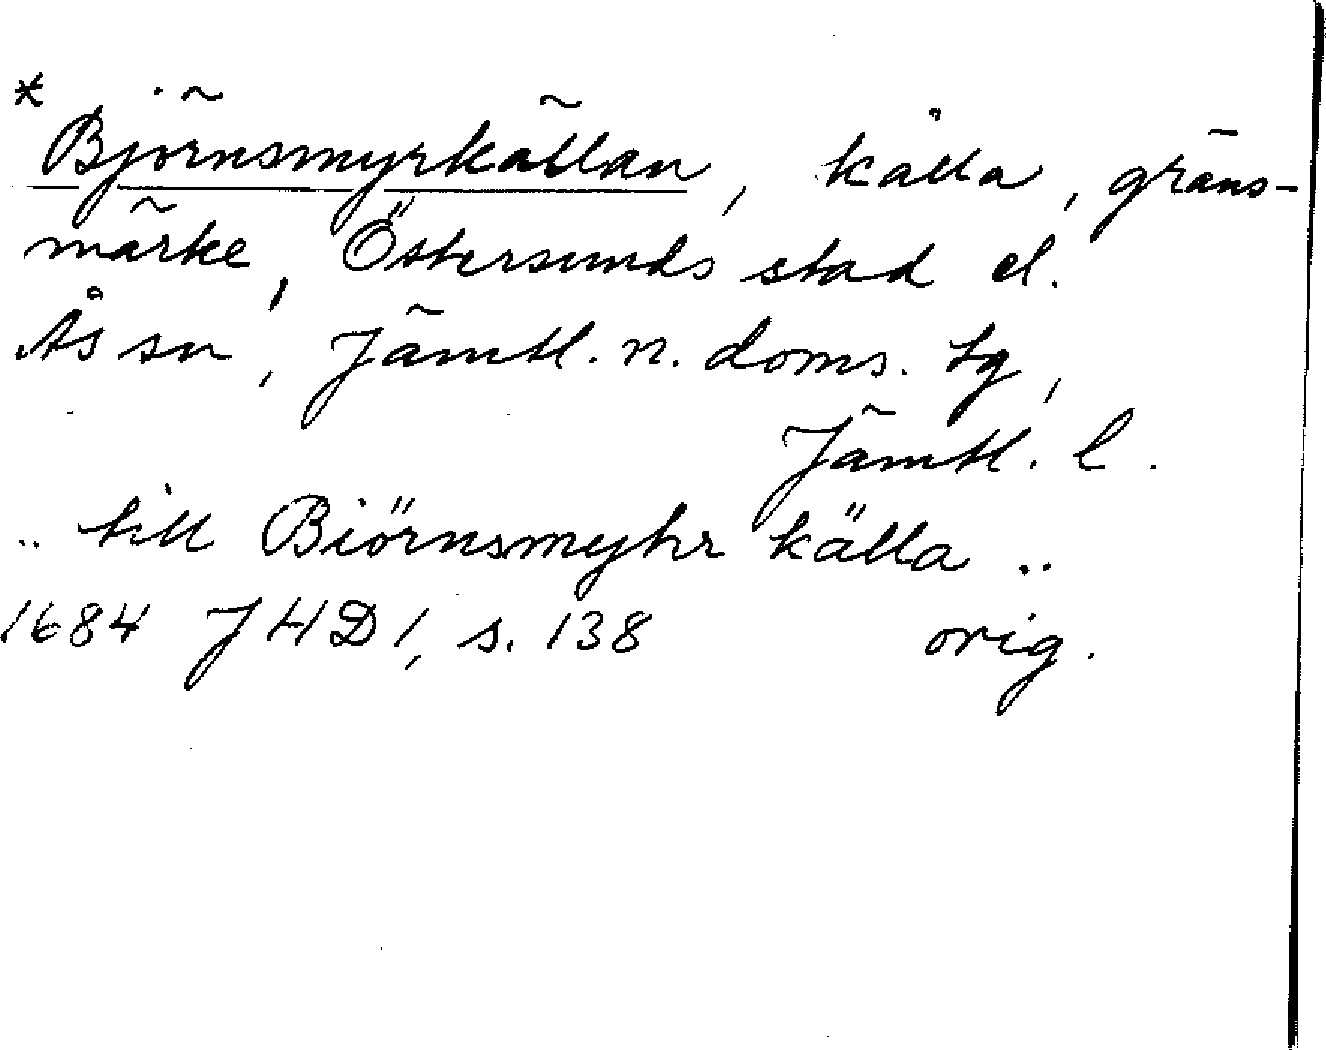 *Björnsmyrkällan, källa, gräns-
märke, Östersunds stad el.
Ås sn, Jämtl. n. doms. tg,
Jämtl. l.
.. till Biörnsmyhr källa ..
1684 JHD 1, s. 138 orig.